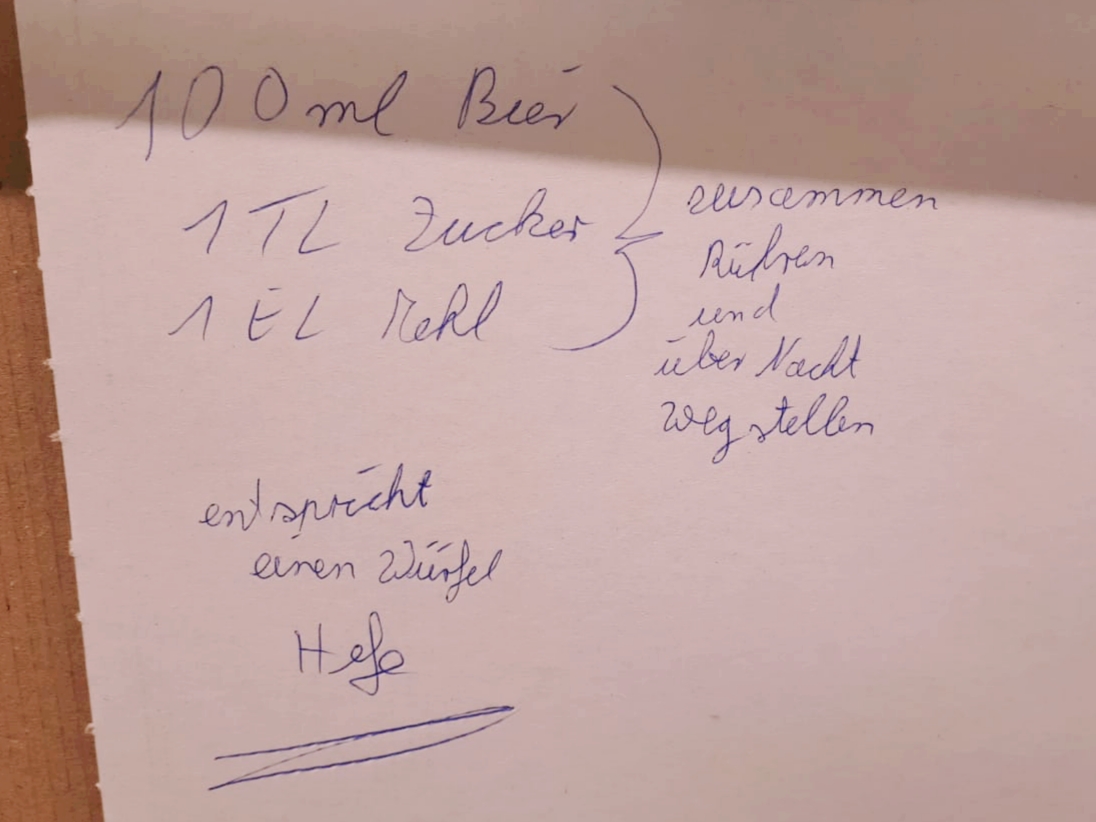 100 ml Bier
1 TL Zucker
1 EL Mehl
zusammen
Rühren
und
über Nacht
wegstellen
entspricht
einen Würfel
Hefe